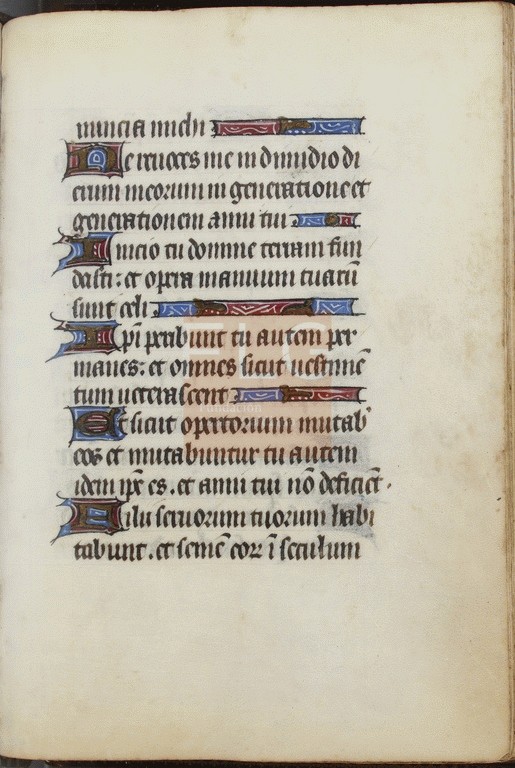 nuncia michi
Ne reuoces me in dimidio di
erum meorum in generatione et
generationem anni tui
Inicio tu domine terram fun
dasti: et opera manuum tuarū
sunt celi
Ipi peribunt tu autem per
manes: et omnes sicut uestimē
tum ueterascent
Et sicut opertorium mutab'
eos et mutabuntur tu autem
idem ipe es. et anni tui nō deficiēt.
Filii seruorum tuorum habi
tabunt. et semē eoꝝ ī seculum
ELG
Fundación